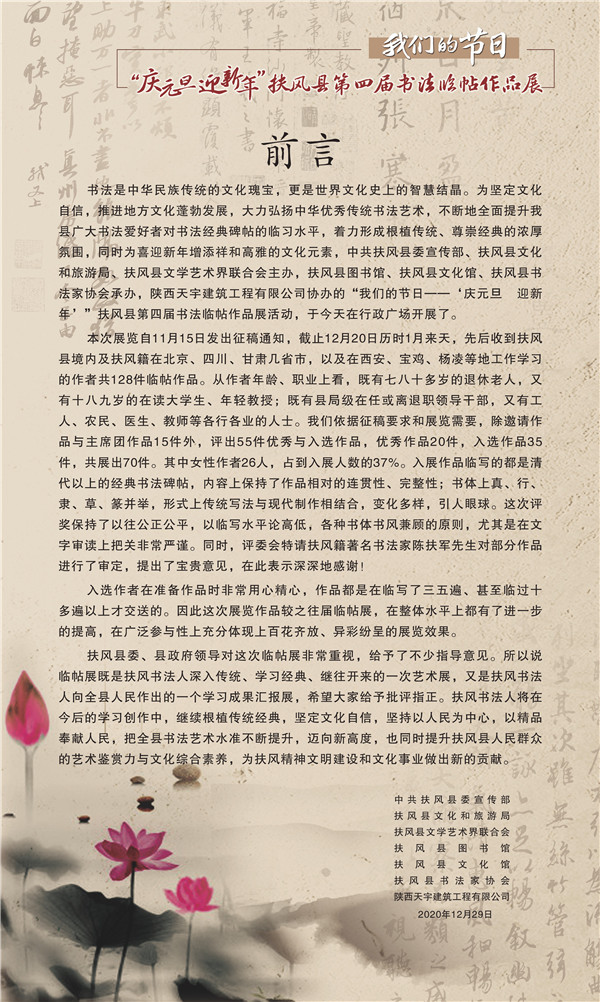 我们的节日
“庆元旦迎新年”扶风县第四届书法临帖作品展
前言
书法是中华民族传统的文化瑰宝，更是世界文化史上的智慧结晶。为坚定文化
自信，推进地方文化蓬勃发展，大力弘扬中华优秀传统书法艺术，不断地全面提升我
县广大书法爱好者对书法经典碑帖的临习水平，着力形成根植传统、尊崇经典的浓厚
氛围，同时为喜迎新年增添祥和高雅的文化元素，中共扶风县委宣传部、扶风县文化
和旅游局、扶风县文学艺术界联合会主办，扶风县图书馆、扶风县文化馆、扶风县书
法家协会承办，陕西天宇建筑工程有限公司协办的“我们的节日——‘庆元旦　迎新
年’”扶风县第四届书法临帖作品展活动，于今天在行政广场开展了。
本次展览自11月15日发出征稿通知，截止12月20日历时1月来天，先后收到扶风
县境内及扶风籍在北京、四川、甘肃几省市，以及在西安、宝鸡、杨凌等地工作学习
的作者共128件临帖作品。从作者年龄、职业上看，既有七八十多岁的退休老人，又
有十八九岁的在读大学生、年轻教授；既有县局级在任或离退职领导干部，又有工
人、农民、医生、教师等各行各业的人士。我们依据征稿要求和展览需要，除邀请作
品与主席团作品15件外，评出55件优秀与入选作品，优秀作品20件，入选作品35
件，共展出70件。其中女性作者26人，占到入展人数的37%。入展作品临写的都是清
代以上的经典书法碑帖，内容上保持了作品相对的连贯性、完整性；书体上真、行、
隶、草、篆并举，形式上传统写法与现代制作相结合，变化多样，引人眼球。这次评
奖保持了以往公正公平，以临写水平论高低，各种书体书风兼顾的原则，尤其是在文
字审读上把关非常严谨。同时，评委会特请扶风籍著名书法家陈扶军先生对部分作品
进行了审定，提出了宝贵意见，在此表示深深地感谢！
入选作者在准备作品时非常用心精心，作品都是在临写了三五遍、甚至临过十
多遍以上才交送的。因此这次展览作品较之往届临帖展，在整体水平上都有了进一步
的提高，在广泛参与性上充分体现上百花齐放、异彩纷呈的展览效果。
扶风县委、县政府领导对这次临帖展非常重视，给予了不少指导意见。所以说
临帖展既是扶风书法人深入传统、学习经典、继往开来的一次艺术展，又是扶风书法
人向全县人民作出的一个学习成果汇报展，希望大家给予批评指正。扶风书法人将在
今后的学习创作中，继续根植传统经典，坚定文化自信，坚持以人民为中心，以精品
奉献人民，把全县书法艺术水准不断提升，迈向新高度，也同时提升扶风县人民群众
的艺术鉴赏力与文化综合素养，为扶风精神文明建设和文化事业做出新的贡献。
中共扶风县委宣传部
扶风县文化和旅游局
扶风县文学艺术界联合会
扶风县图书馆
扶风县文化馆
扶风县书法家协会
陕西天宇建筑工程有限公司
2020年12月29日